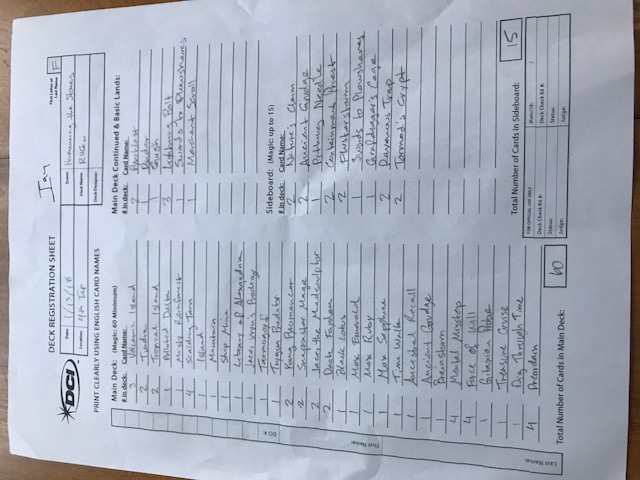 DECK REGISTRATION SHEET
Ian
First Letter of
Last Name
F
DCI
Date: 1/13/18
Event: Homebrewing the Stones
Location: 4th Tap
Deck Name: RUGw
Deck Designer:
PRINT CLEARLY USING ENGLISH CARD NAMES
Main Deck: (Magic: 60 Minimum)
# in deck: Card Name:
3 Volcanic Island
2 Tundra
2 Tropical Island
1 Polluted Delta
1 Misty Rainforest
4 Scalding Tarn
1 Island
1 Mountain
1 Strip Mine
1 Library of Alexandria
1 Jace, Vryn's Prodigy
1 Tarmogoyf
1 Trygon Predator
2 Young Pyromancer
2 Snapcaster Mage
2 Jace, the Mindsculptor
2 Dack Fayden
1 Black Lotus
1 Mox Emerald
1 Mox Ruby
1 Mox Sapphire
1 Time Walk
1 Ancestral Recall
1 Ancient Grudge
1 Brainstorm
4 Mental Misstep
4 Force of Will
1 Gitaxian Probe
1 Treasure Cruise
1 Dig Through Time
4 Preordain
Total Number of Cards in Main Deck: 60
Main Deck Continued & Basic Lands:
# in deck: Card Name:
2 Pyroblast
1 Ponder
1 Gush
3 Lightning Bolt
1 Swords to Plowshares
1 Merchant Scroll
Sideboard: (Magic: up to 15)
# in deck: Card Name:
2 Nature's Claim
2 Ancient Grudge
1 Pithing Needle
2 Containment Priest
2 Flusterstorm
1 Swords to Plowshares
1 Grafdigger's Cage
2 Ravenous Trap
2 Tormod's Crypt
Total Number of Cards in Sideboard: 15
FOR OFFICIAL USE ONLY
Main/SB: /
Deck Check Rd #:
Deck Check Rd #:
Status:
Status:
Judge:
Judge:
DCI #:
First Name:
Last Name: